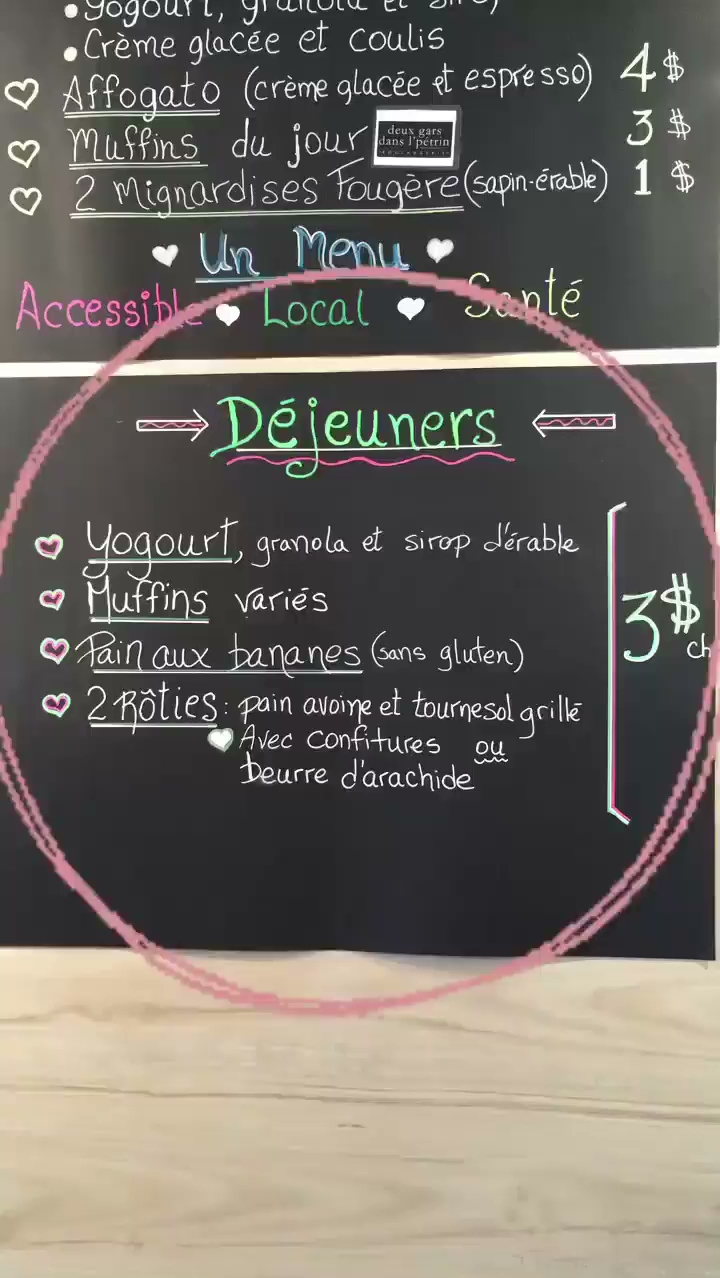 • Yogourt, granola et sirop
• Crème glacée et coulis
Affogato (crème glacée et espresso) 4 $
Muffins du jour deux gars dans l'pétrin 3 $
2 Mignardises Fougère (sapin-érable) 1 $
Un Menu
Accessible Local Santé
Déjeuners
Yogourt, granola et sirop d'érable
Muffins variés
Pain aux bananes (sans gluten)
3 $ ch
2 Rôties: pain avoine et tournesol grillé
Avec confitures ou
beurre d'arachide